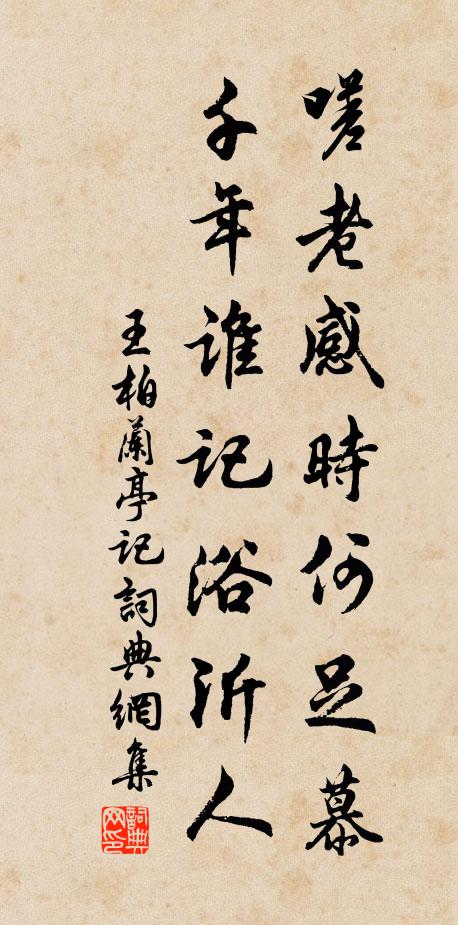 嗟老感時何足慕
千年誰記浴沂人
王柏蘭亭記詞典網集
詞典網印